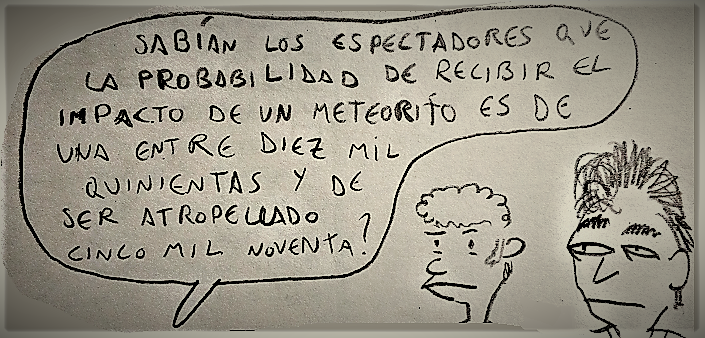 SABÍAN LOS ESPECTADORES QUE
LA PROBABILIDAD DE RECIBIR EL
IMPACTO DE UN METEORITO ES DE
UNA ENTRE DIEZ MIL
QUINIENTAS Y DE
SER ATROPELLADO
CINCO MIL NOVENTA?